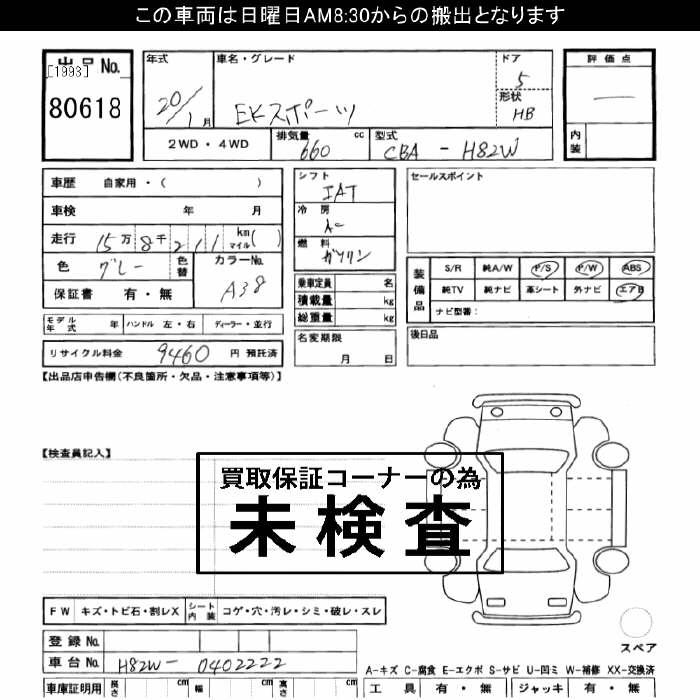 この車両は日曜日AM8:30からの搬出となります
出品No.
[1993]
80618
年式
20/1月
車名・グレード
EKスポーツ
ドア
5
形状
HB
評価点
内装
2WD・4WD
排気量
660 cc
型式
CBA - H82W
車歴 自家用・( )
車検 年 月
走行 15万8千211 km マイル( )
色 グレー 色替
カラーNo.
A38
保証書 有・無
シフト
IAT
冷房
燃料
ガソリン
乗車定員 名
積載量 kg
総重量 kg
セールスポイント
装備品
S/R 純A/W P/S P/W ABS
純TV 純ナビ 革シート 外ナビ エアB
ナビ型番:
モデル年式 年 ハンドル 左・右 ディーラー・並行
リサイクル料金 9460 円 預託済
名変期限
月 日
後日品
【出品店申告欄(不良箇所・欠品・注意事項等)】
【検査員記入】
買取保証コーナーの為
未検査
FW キズ・トビ石・割レX シート内装 コゲ・穴・汚レ・シミ・破レ・スレ
登録No.
車台No. H82W- 0402222
車庫証明用 長さ cm 幅 cm 高さ cm
スペア
A-キズ C-腐食 E-エクボ S-サビ U-凹ミ W-補修 XX-交換済
工具 有・無 ジャッキ 有・無